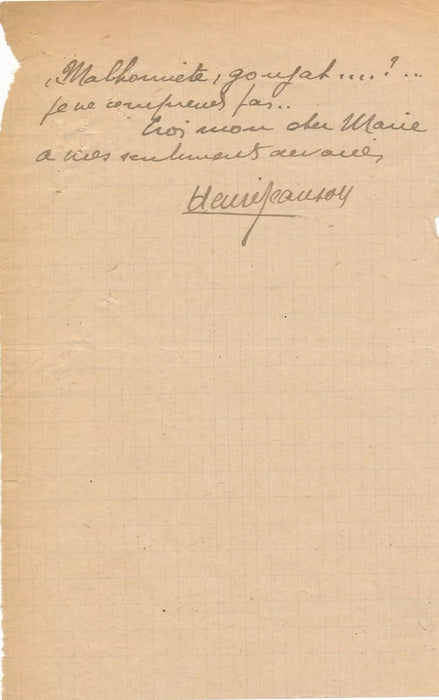 "Malhonnête, goujat....?..
je ne comprends pas..
Crois mon cher Marie
a mes sentiments dévoués
Henri Jeanson